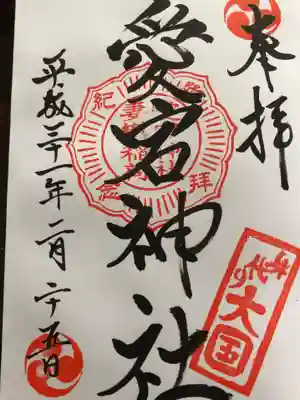 奉拝
愛宕神社
平成三十一年二月二十五日
参拝
記念
大国